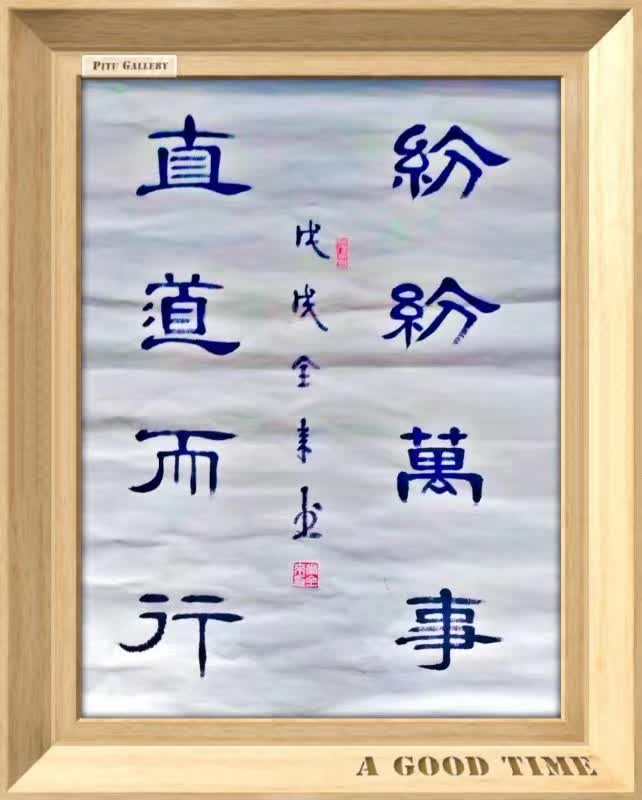 PITU GALLERY
紛紛萬事
直道而行
戊戌全来书
A GOOD TIME